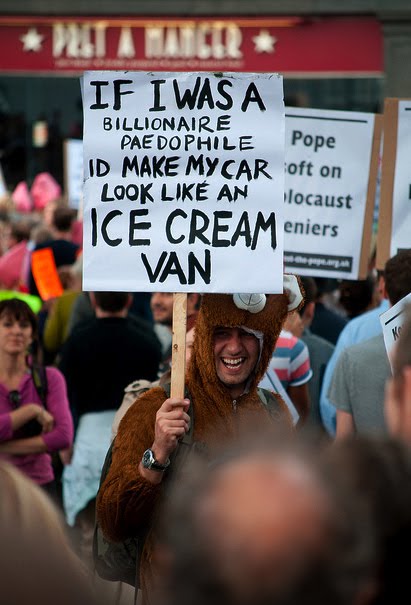 PRET A MANGER
IF I WAS A
BILLIONAIRE
PAEDOPHILE
ID MAKE MY CAR
LOOK LIKE AN
ICE CREAM
VAN
Pope
soft on
olocaust
eniers
t-the-pope.org.uk